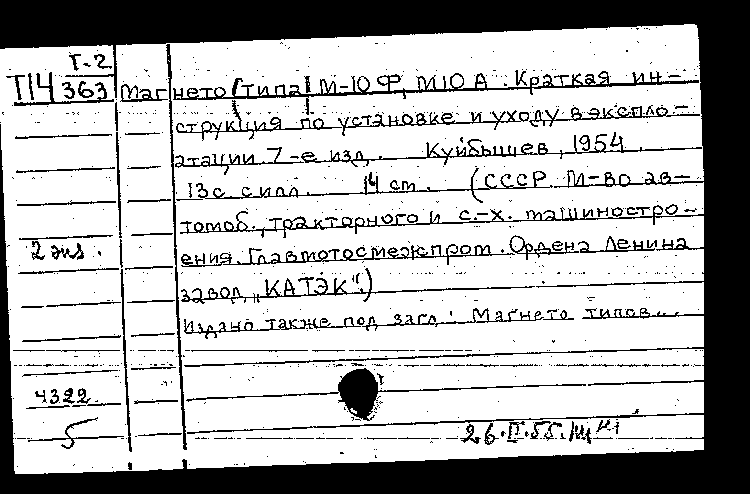 Т-2
П14 363
Магнето (типа) М-10 Ф, М10 А. Краткая ин-
струкция по установке и уходу в экспло-
атации. 7-е изд. Куйбышев, 1954.
13 с. с илл. 14 см. (СССР. М-во ав-
томоб., тракторного и с.-х. машиностро-
2 экз.
ения. Главмотосмежпром. Ордена Ленина
завод „КАТЭК“.)
Издано также под загл.: Магнето типов...
4322
5
26.II.55.